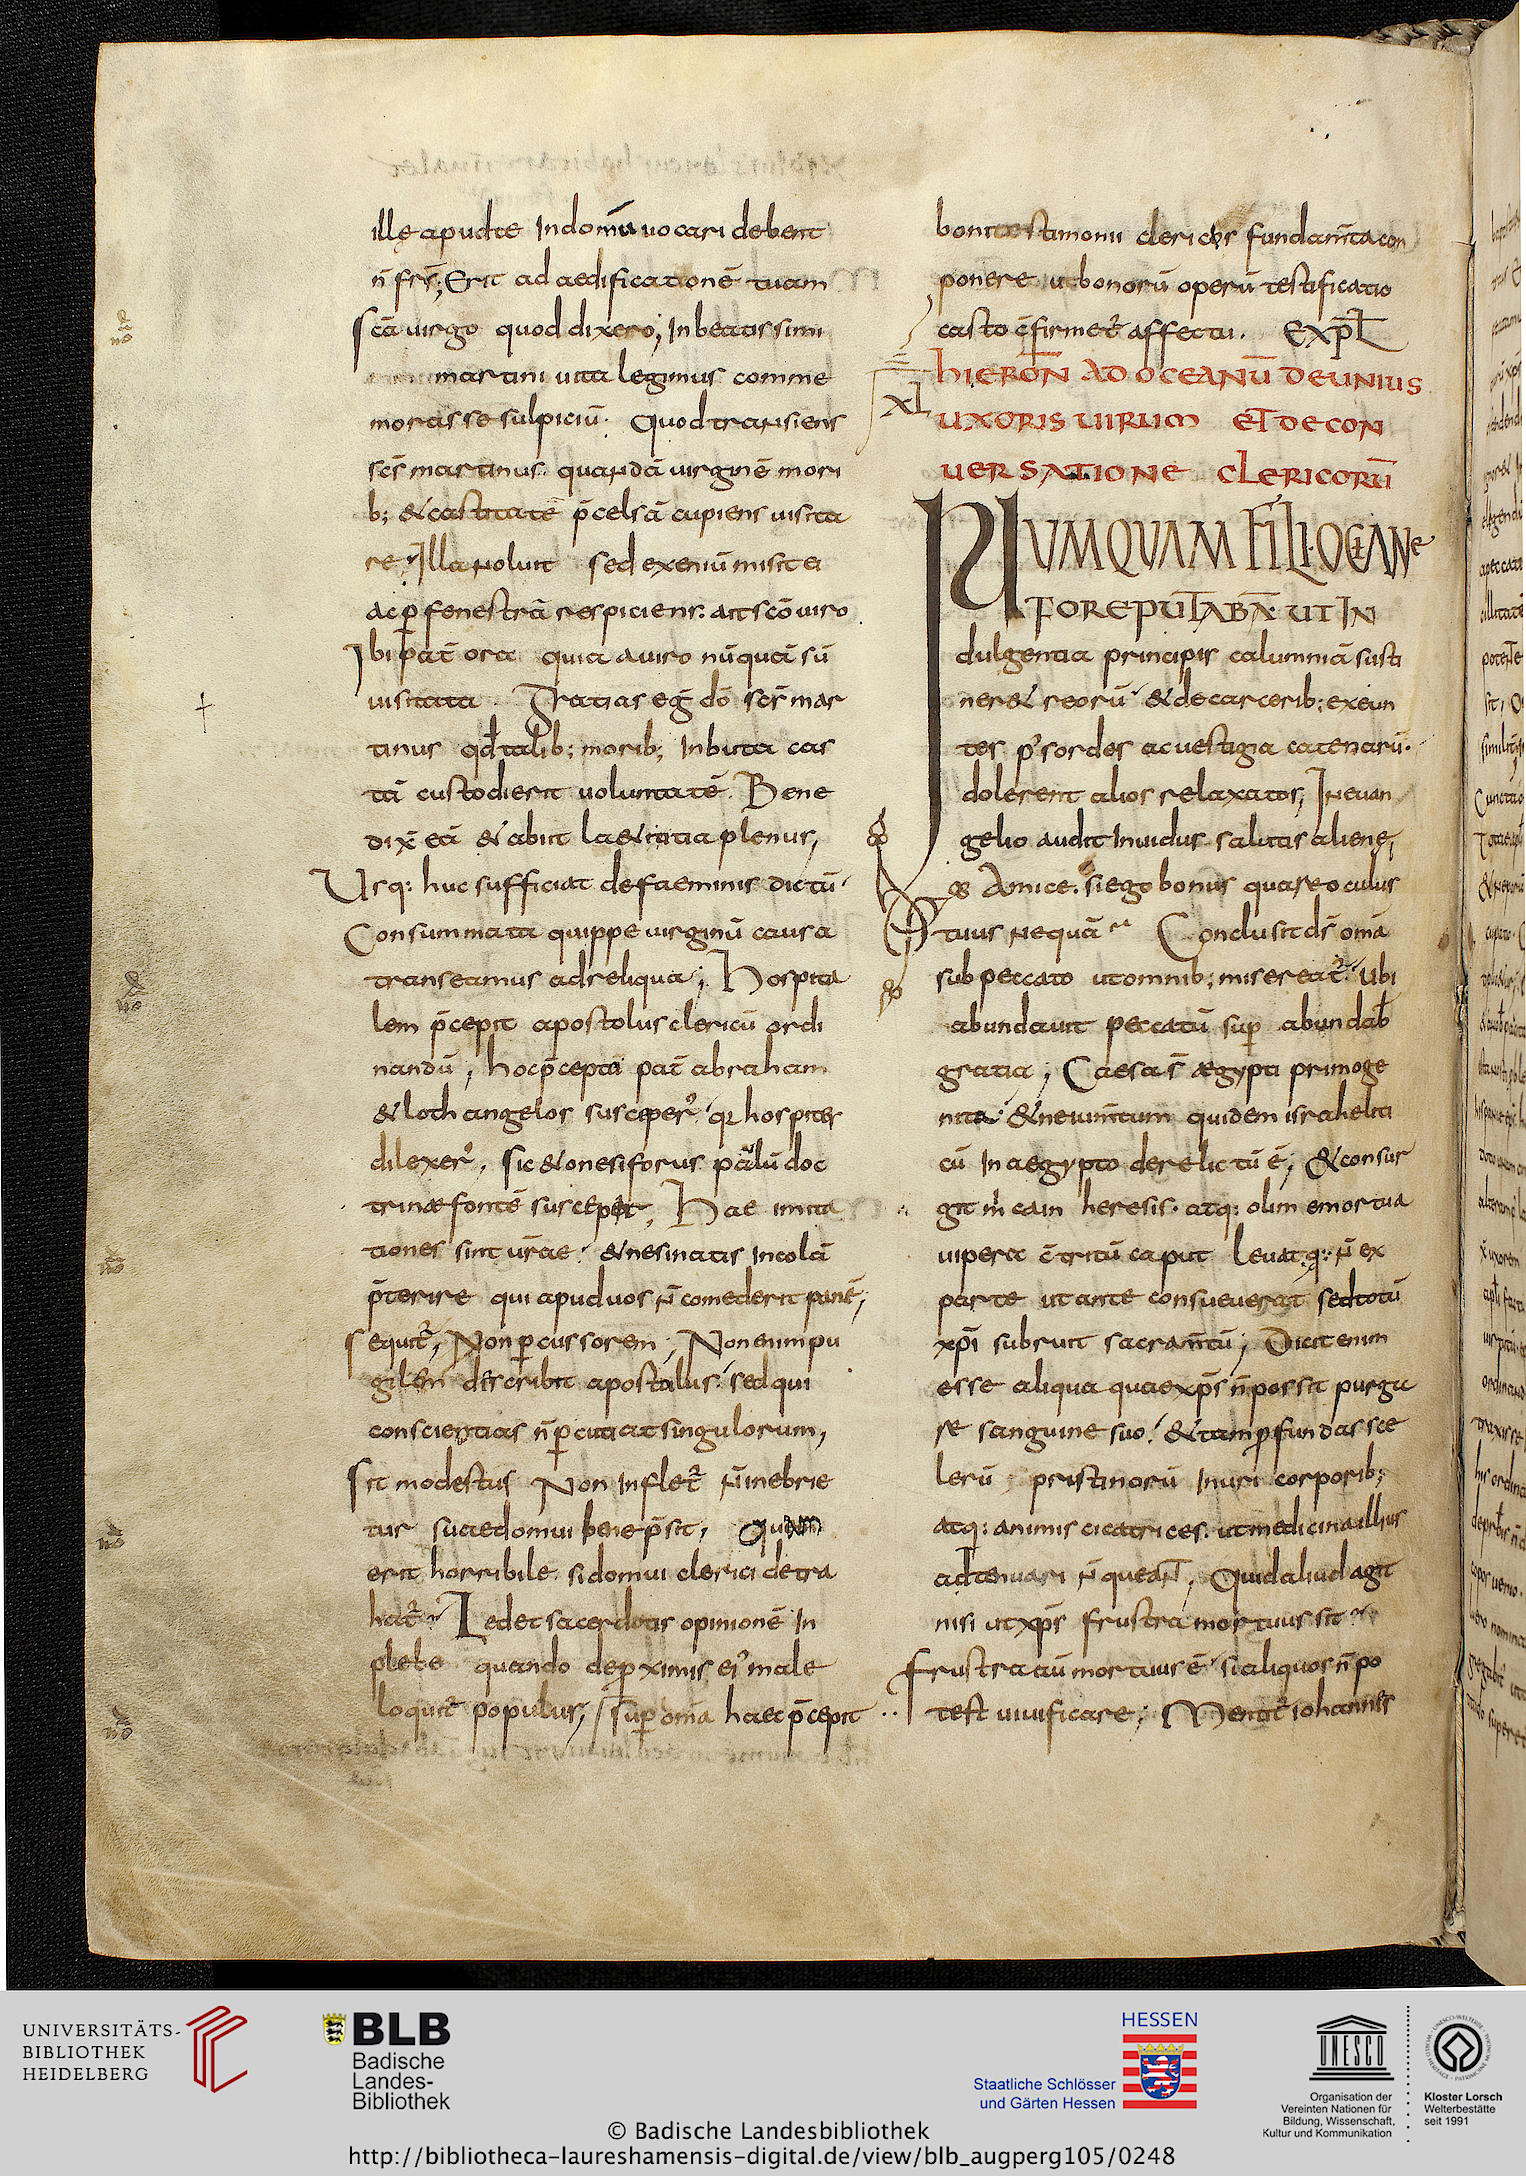 illę apudte Indomū uocari debent
n̄ fr̄s; Erit ad aedificationē tuam
sc̄a uirgo quod dixero; Inbeatissimi
martini uita legimus comme
morasse sulpiciū. Quod transiens
sc̄s martinus quandā uirginē mori
b; & castitate p̄celsā cupiens uisita
re. Illa noluit sed exeniū misit ei
ac ꝑ fenestrā respiciens. ait sc̄o uiro
Ibi pat̄ ora quia auiro nūquā sū
uisitata. Gratias eg̅ dō sc̄s mar
tinus qd̄ talib; morib; Inbuta cas
tā custodierit uoluntatē. Bene
dix̄ eā & abiit la&itia plenus,
Usq: huc sufficiat defaeminis dictū.
Consummata quippe uirginū causa
transeamus adreliqua; Hospita
lem p̄cepit apostolus clericū ordi
nandū; hoc p̄cepta pat̄ abraham
& loth angelos susceper̄ qȝ hospites
dilexer̄, sic & onesiforus paulū doc
trinæ fontē suscepit, Hae imita
tiones sint ur̄ae & nesinatis Incolā
p̄terire qui apud uos n̄ comederit panē;
sequit̄, Non ꝑcussorem; Non enim pu
gilem discribit apostolus sed qui
conscientias n̄ ꝑcutiat singulorum,
Sit modestus Non Inflet̄ n̄ inebrie
tur suaedomui bene p̄sit, Quam
erit horribile si domui clerici detra
hat̄. Ledet sacerdotis opinionē In
plebe quando deꝓximis ei' male
loquit̄ populus; sup om̄a haec p̄cepit
boni testimonii clericos fundam̄ta con
ponere ut bonorū operū testificatio
casto c̄firmet̄ affectu. EXPL
XL
HIERON̄ AD OCEANŪ DEUNIUS
UXORIS UIRUM ET DECON
UERSATIONE CLERICORŪ
NUMQUAM FILI OCEANE
FORE PUTABĀ UT IN
dulgentia principis calumniā susti
ner& reorū & decarcerib; exeun
tes p' sordes ac uestigia catenarū.
dolerent alios relaxatos; In euan
gelio audit Inuidus salutis alienę;
Amice. si ego bonus quare oculus
tuus nequā Conclusit ds̄ om̄a
sub peccato ut omnib; misereat̄. Ubi
abundauit peccatū sup abundab̄
gratia; Caesa s̄ ægypti primoge
nita & ne ium̄tum quidem israheliti
cū In aegypto derelictū ē; & consur
git m̄ cain heresis. atq: olim emortua
uipera c̄tritū caput leuat. q: n̄ ex
parte ut ante consueuerat sed totū
xp̄i subruit sacram̄tū; Dicit enim
esse aliqua quae xp̄s n̄ possit purga
re sanguine suo & tam ꝓfundas sce
lerū pristinorū Inuri corporib;
atq: animis cicatrices. ut medicina illius
adtenuari n̄ queant; Quid aliud agit
nisi ut xp̄s frustra mortuus sit
frustra aū mortuus ē si aliquos n̄ po
test uiuificare; Mentit̄ iohannis
UNIVERSITÄTS-
BIBLIOTHEK
HEIDELBERG
BLB
Badische
Landes-
Bibliothek
HESSEN
Staatliche Schlösser
und Gärten Hessen
UNESCO
Organisation der
Vereinten Nationen für
Bildung, Wissenschaft,
Kultur und Kommunikation
Kloster Lorsch
Welterbestätte
seit 1991
© Badische Landesbibliothek
http://bibliotheca-laureshamensis-digital.de/view/blb_augperg105/0248